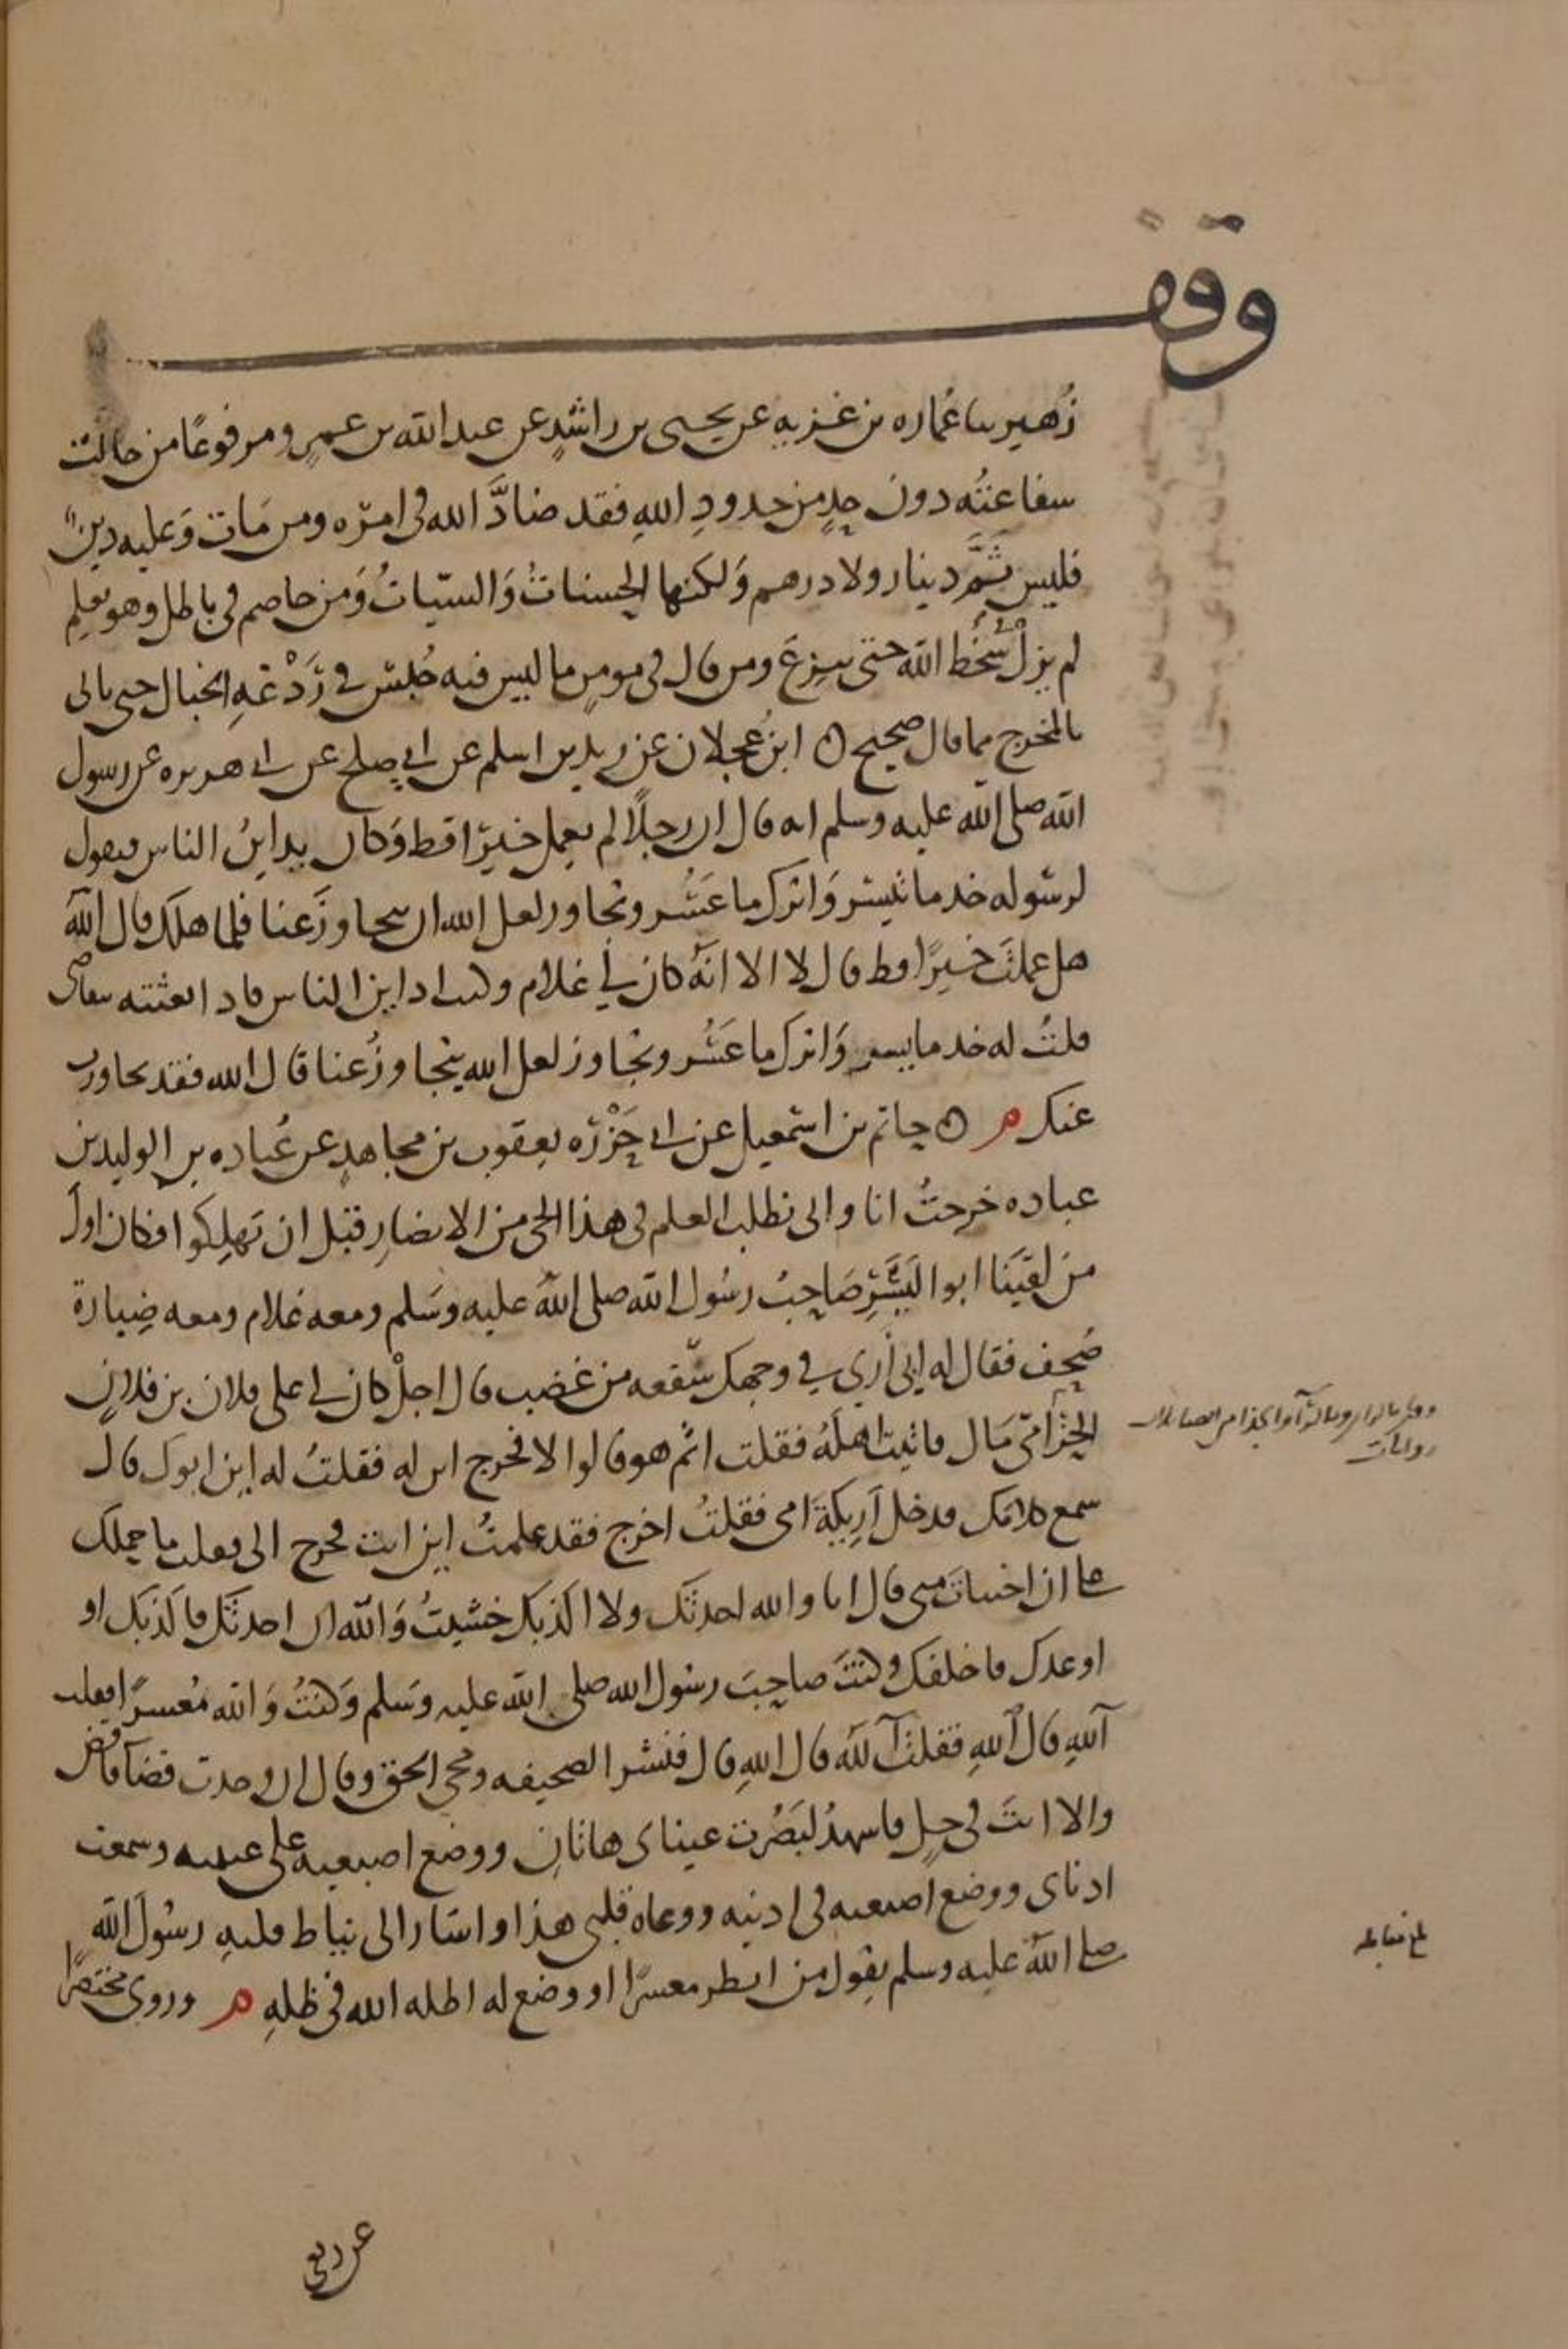 وقف
زُهير ثنا عُماره بن غزيه عن يحيى بن راشدٍ عن عبد الله بن عمر ومرفوعًا من حالت
شفاعتُه دون حدٍ من حدودِ اللهِ فقد ضادَّ الله في امره ومن مَات وَعليه دينٌ
فليس ثَمَّ دينار ولا درهم وَلكنها الحسناتُ وَالسيّاتُ وَمن خاصم في باطل وهو يعلم
لم يزلْ في سُخْط الله حتى ينزعَ ومن قال في مومنٍ ما ليس فيه حُبسَ في رَدْغةِ الخبال حتى ياتي
بالمخرج مما قال صحيح ابنُ عجلان عن زيد بن اسلم عن ابي صلح عن ابي هريره عن رسول
الله صلى الله عليه وسلم انه قال ان رجلًا لم يعمل خيرًا قط وَكان يداينُ الناس فيقول
لرسوله خذ ما تيسر وَاترك ما عَسُر وتجاوز لعل الله ان يتجاوزَ عنا فلما هلك قال الله
هل عملتَ خيرًا قط قال لا الا انهُ كان لي غلام وكنت اداين الناس فاذا بعثته يتقاضى
قلتُ له خذ ما تيسر وَاترك ما عَسُر وتجاوز لعل الله يتجاوزُ عنا قال الله فقد تجاوزت
عنك م حاتم بن اسمعيل عن ابي حَزْرَه يعقوب بن مجاهدٍ عن عُباده بن الوليد بن
عباده خرجتُ انا وابي نطلب العلم في هذا الحي من الانصارِ قبل ان يَهلِكوا فكان اول
من لقيَنَا ابو اليَسَرِ صَاحبُ رسُول الله صلى اللهُ عليه وسَلم ومعه غلام ومعه ضِبارة
صُحف فقال له ابي أرى في وجهك سَفعه من غضب قال اجلْ كان لي على فلان بن فلانٍ
الحزامي مَال فاتيت اهلَهُ فقلت اثم هو قالوا لا فخرج ابن له فقلتُ له اين ابوك قال
سمع كلامَك فدخل أَرِيكةَ امي فقلتُ اخرج فقد علمتُ اين انت فخرج الي فقلت ما حملك
على ان اختباتَ مني قال انا والله احدثك ولا اكذبك خشيتُ وَالله ان احدثك فاكذبَك او
اوعدك فاخلفك وكنتَ صاحبَ رسُول الله صلى الله عليه وسَلم وَكنتُ وَالله مُعسرًا فقلت
آللهِ قال اللهِ فقلتُ آللهِ قال اللهِ قال فنشر الصحيفه ومحى الحق وقال ان وجدت قضآ فاقض
والا انتَ في حِل فاشهدُ لبَصُرت عيناى هاتان ووضع اصبعيه على عينيه وسمعت
اذناى ووضع اصبعيه في اذنيه ووعاه قلبي هذا واشار الى نياط قلبهِ رسُولَ الله
صلى اللهُ عليه وسلم يقول من انظر معسرًا او وضع له اظله الله في ظلهِ م وروى مختصرًا
روايات
بلغ مقابله
عن ربعي